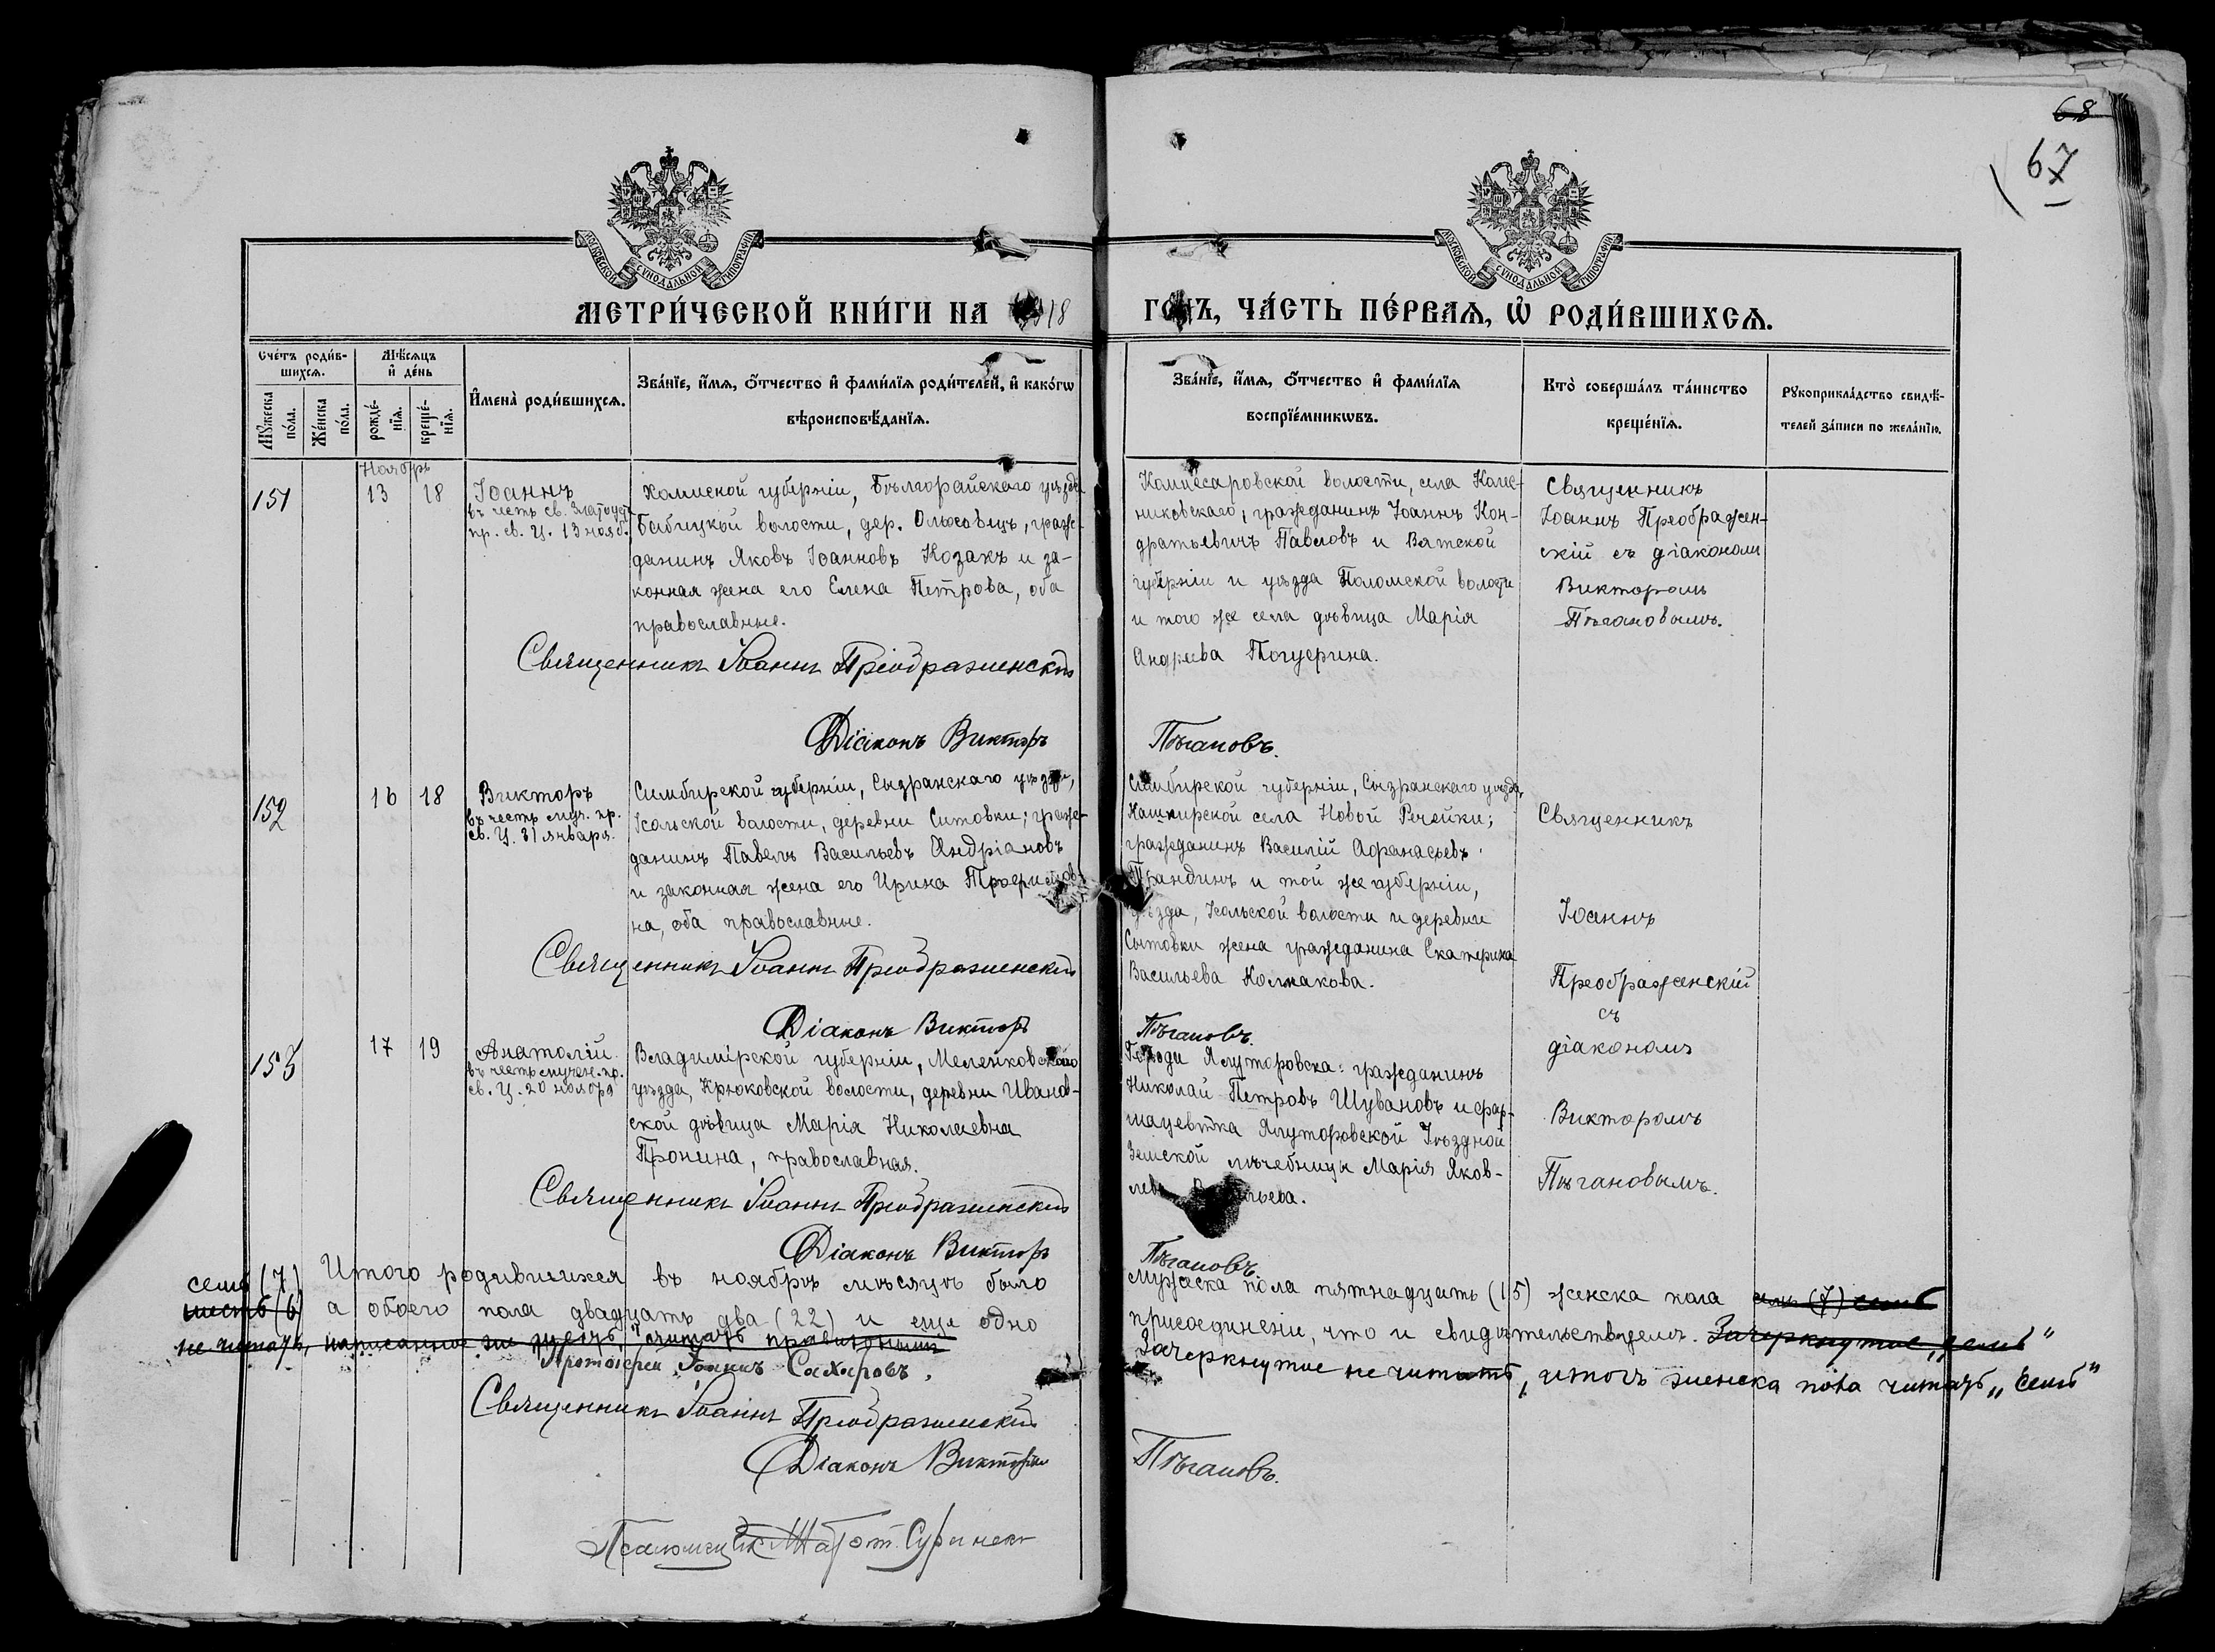 68
67
МОСКОВСКОЙ СѴНОДАЛЬНОЙ ТИПОГРАФІИ
МОСКОВСКОЙ СѴНОДАЛЬНОЙ ТИПОГРАФІИ
МЕТРИ́ЧЕСКОЙ КНИ́ГИ НА 1918
ГОДЪ, ЧА́СТЬ ПЕ́РВАѦ, Ѡ҆ РОДИ́ВШИХСѦ.
Сче́тъ роди́в-
шихсѧ.
Мѣ́сѧцъ
и҆ де́нь
Мꙋ́жеска
по́ла.
Же́нска
по́ла.
рожде́-
нїѧ.
креще́-
нїѧ.
И҆мена̀ роди́вшихсѧ.
Зва́нїе, и҆́мѧ, ѻ҆́тчество и҆ фами́лїѧ роди́телей, и҆ како́гѡ
вѣроисповѣ́данїѧ.
Зва́нїе, и҆́мѧ, ѻ҆́тчество и҆ фами́лїѧ
воспрїе́мникѡвъ.
Кто̀ соверша́лъ та́инство
креще́нїѧ.
Рꙋкоприкла́дство свидѣ́-
телей за́писи по жела́нїю.
Ноябрь
151
13
18
Іоаннъ
въ честь св. Златоуста
пр. св. Ц. 13 нояб.
Холмской губерніи, Бѣлгорайскаго уѣзда
Бабицкой волости, дер. Олюховецъ, граж-
данинъ Яковъ Іоанновъ Козакъ и за-
конная жена его Елена Петрова, оба
православные.
Священникъ Іоаннъ Преображенскій
Діаконъ Викторъ
Комисаровской волости, села
никовскаго, гражданинъ Іоаннъ Кон-
дратьевичъ Павловъ и Вятской
губерніи и уѣзда Поломской волости
и того же села дѣвица Марія
Андреева
Пѣгановъ.
Священникъ
Іоаннъ Преображен-
скій съ діакономъ
Викторомъ
Пѣгановымъ.
152
16
18
Викторъ
въ честь муч. пр.
св. Ц. 31 января.
Симбирской губерніи, Сызранскаго уѣзда,
Усольской волости, деревни Ситовки; граж-
данинъ Павелъ Васильевъ Андріановъ
и законная жена его Ирина
на, оба православные.
Священникъ Іоаннъ Преображенскій
Діаконъ Викторъ
Симбирской губерніи, Сызранскаго уѣзда,
села Новой Рачейки;
гражданинъ Василій Афанасьевъ
и той же губерніи,
уѣзда, Усольской волости и деревни
Сытовки жена гражданина Екатерина
Васильева Колмакова.
Пѣгановъ.
Священникъ
Іоаннъ
Преображенскій
съ
діакономъ
Викторомъ
Пѣгановымъ.
153
17
19
Анатолій
въ честь мучен. пр.
св. Ц. 20 ноября
Владимірской губерніи, Меленковскаго
уѣзда, Крюковской волости, деревни Иванов-
ской дѣвица Марія Николаевна
Пронина, православная.
Священникъ Іоаннъ Преображенскій
Діаконъ Викторъ
Города Ялуторовска: гражданинъ
Николай Петровъ Шувановъ и фар-
мацевтка Ялуторовской Уѣздной
Земской лѣчебницы Марія Яков-
лева
Пѣгановъ.
Итого родившихся въ ноябрѣ мѣсяцѣ было
мужеска пола пятнадцать (15) женска пола семь (7) семь
семь (7)
шесть (6) а обоего пола двадцать два (22) и еще одно
присоединеніе, что и свидѣтельствуемъ. Зачеркнутое „семь"
не читать,
Зачеркнутое не читать, итогъ женска пола читать „семь"
Протоіерей Іоаннъ Сахаровъ.
Священникъ Іоаннъ Преображенскій
Діаконъ Викторъ
Пѣгановъ.
Псаломщикъ